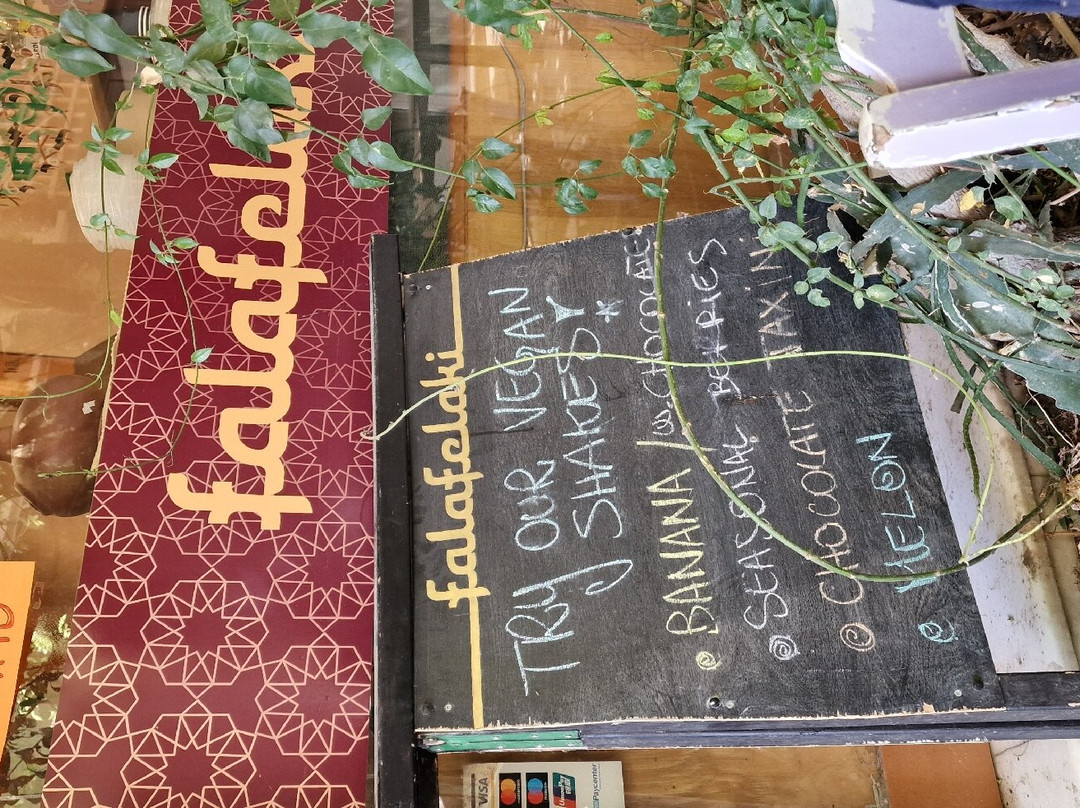 falafelaki
falafelaki
TRY OUR VEGAN
SHAKESY *
@ BANANA /w.CHOCOLATE
@ SEASONAL BERRIES
@ CHOCOLATE TAXIN.
@ MELON
VISA
UnionPay
Paycenter